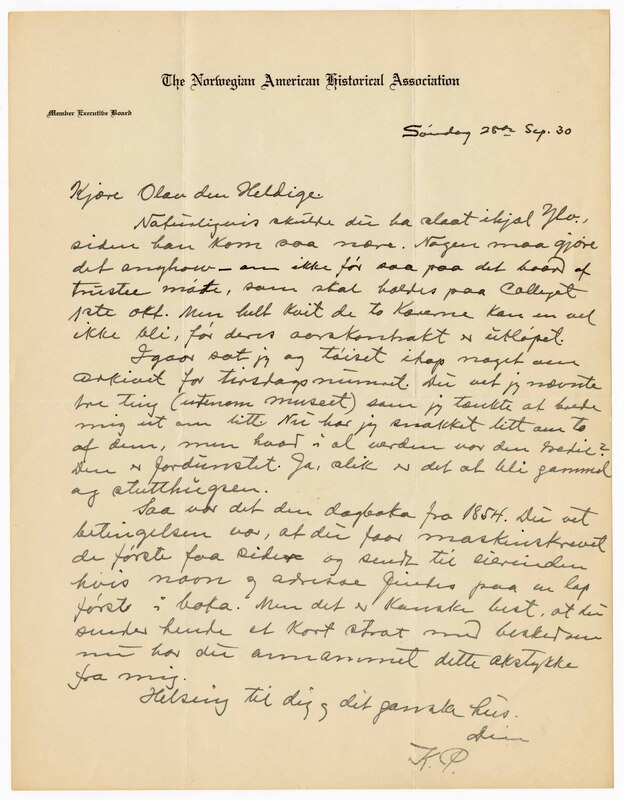 The Norwegian American Historical Association
Member Executive Board
Søndag 28de Sep. 30
Kjære Olav den Heldige.
Naturligvis skulde du ha slaat ihjal Ylv.,
siden han kom saa nære. Nogen maa gjøre
det anyhow — om ikke før saa paa det board of
trustee møte, som skal holdes paa Colleget
1ste okt. Men helt kvit de to Karerne kan en vel
ikke bli, før deres aarskontrakt er utløpet.
Igaar sat jeg og tøiset ihop noget om
arkivet for tirsdagsnumret. Du vet jeg nævnte
tre ting (utenom museet) som jeg tænkte at brede
mig ut om litt. Nu har jeg snakket litt om to
af dem, men hvad i al verden var den tredie?
Den er fordunstet. Ja, slik er det at bli gammel
og stutthugsen.
Saa var det den dagboka fra 1854. Du vet
betingelsen var, at du faar maskinskrevet
de første faa sider og sendt til eierinden
hvis navn og adresse findes paa en lap
først i boka. Men det er kanske best, at du
sender hende et kort strax med besked om
nu har du annammet dette akstykke
fra mig.
Helsing til dig og dit ganske hus.
Din
K. P.